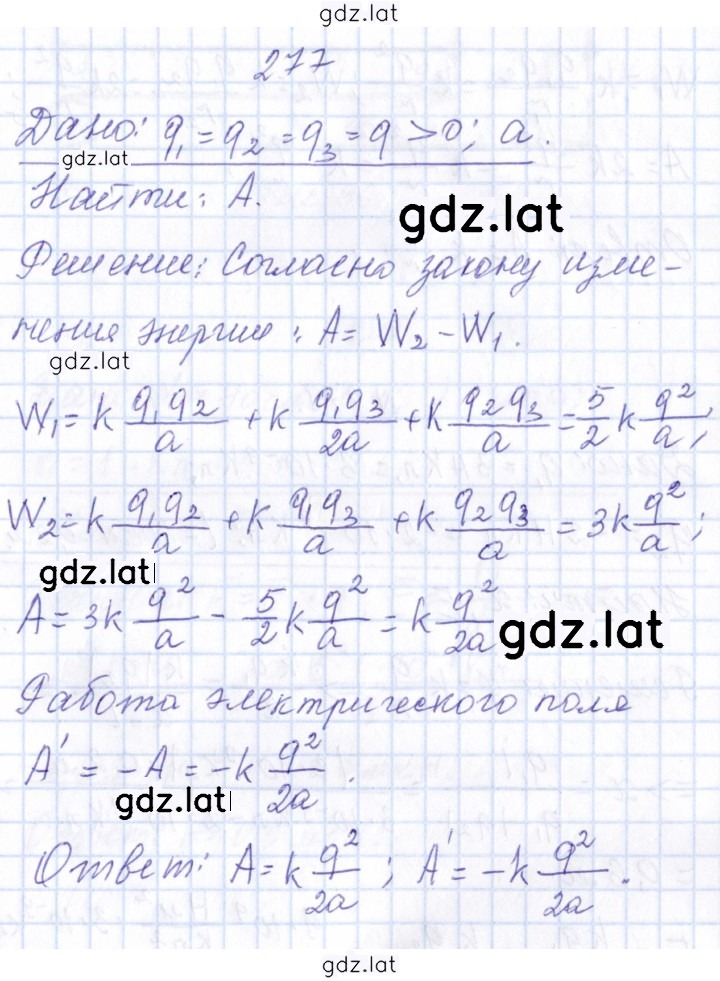 gdz.lat
277
Дано: q₁ = q₂ = q₃ = q > 0; a.
gdz.lat
Найти: A.
gdz.lat
Решение: Согласно закону изме-
нения энергии: A = W₂ - W₁.
gdz.lat
W₁ = k q₁q₂/a + k q₁q₃/2a + k q₂q₃/a = 5/2 k q²/a;
W₂ = k q₁q₂/a + k q₁q₃/a + k q₂q₃/a = 3k q²/a;
gdz.lat
A = 3k q²/a - 5/2 k q²/a = k q²/2a
gdz.lat
Работа электрического поля
A' = -A = -k q²/2a.
gdz.lat
Ответ: A = k q²/2a; A' = -k q²/2a.
gdz.lat